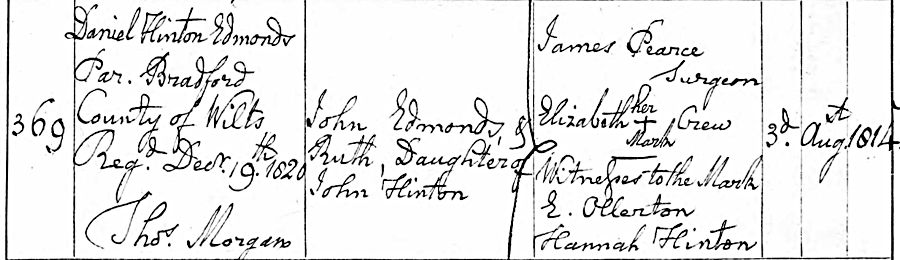 369
Daniel Hinton Edmonds
Par. Bradford
County of Wilts
Regd. Decr. 19th. 1820
Thos. Morgan
John Edmonds, &
Ruth, Daughter of
John Hinton
James Pearce
Surgeon
Elizabeth her + Mark Crew
Witnesses to the Mark
E. Ollerton
Hannah Hinton
3d. Augst 1814